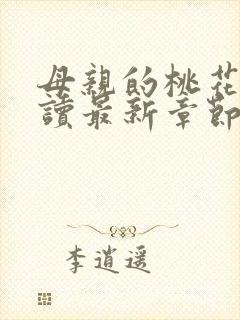 母親的桃花
讀最新章節
李逍遥